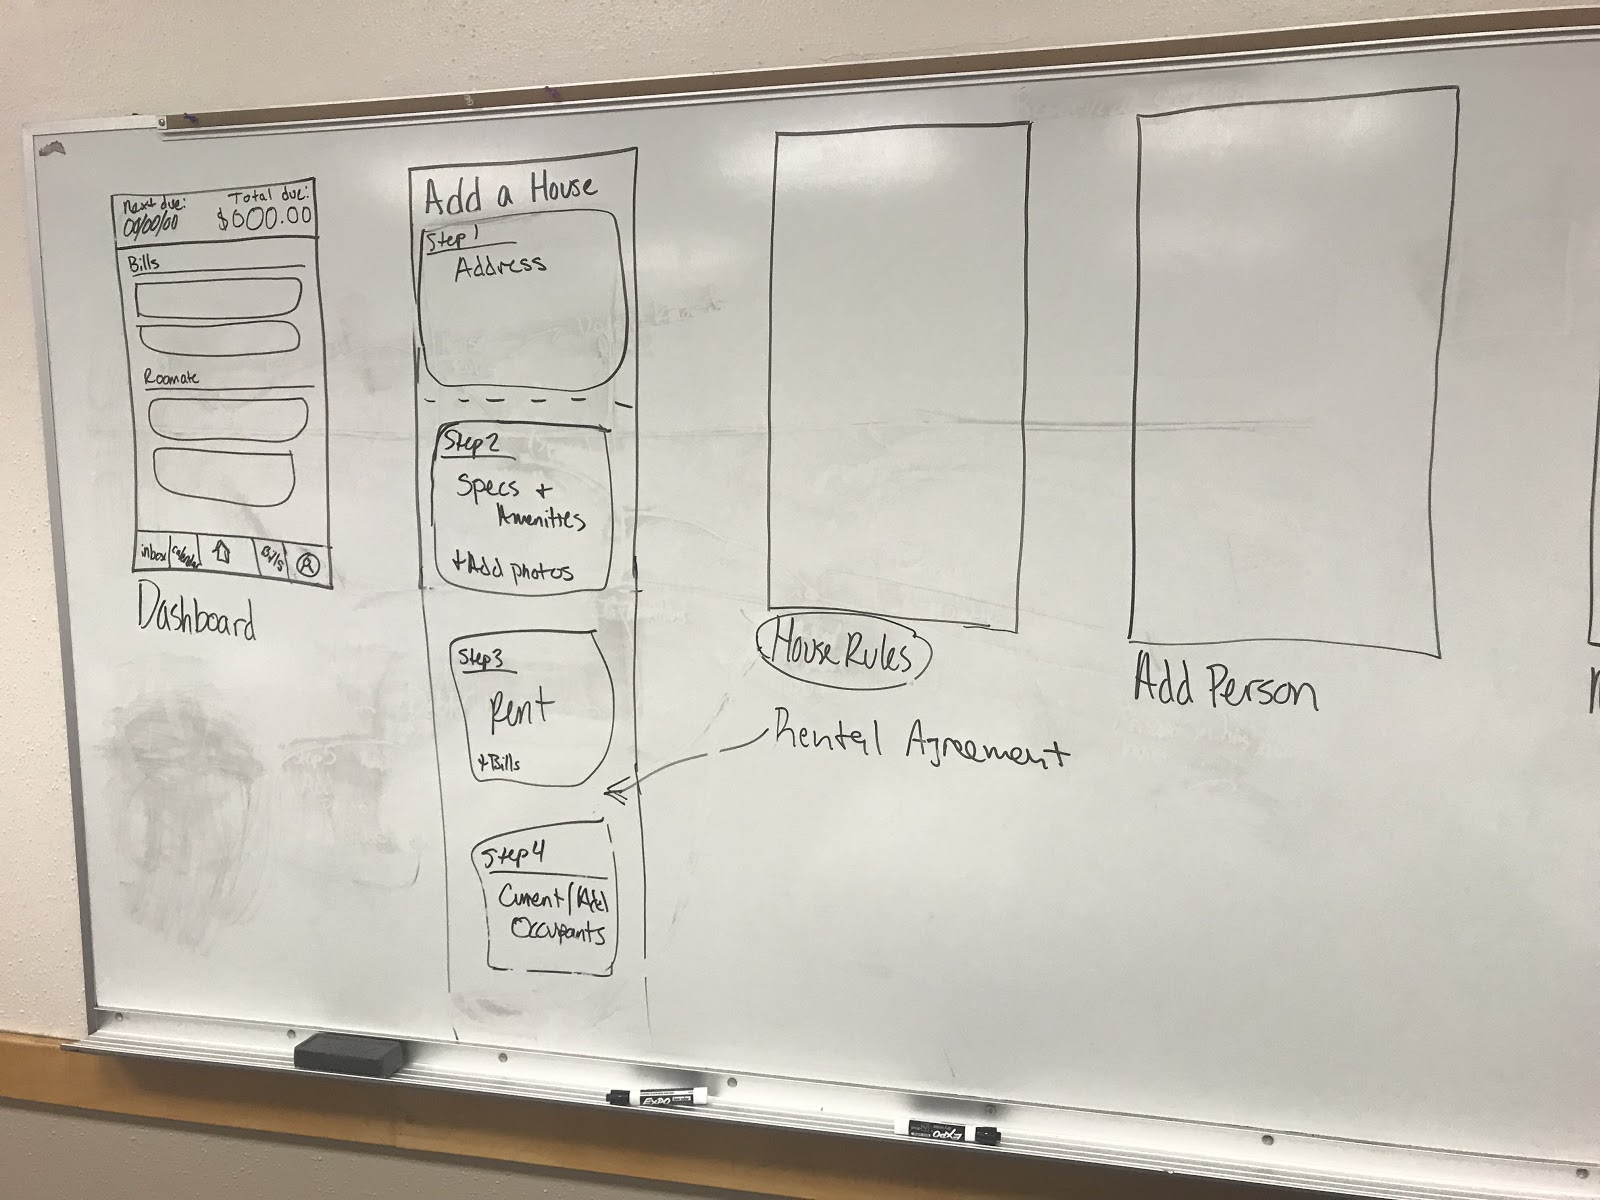 Next due:
00/00/00
Total due:
$000.00
Bills
Roomate
inbox
calendar
Bills
Dashboard
Add a House
Step 1
Address
Step 2
Specs +
Amenities
+Add photos
Step 3
Rent
+Bills
Step 4
Current/Add
Occupants
House Rules
Rental Agreement
Add Person
EXPO
EXPO